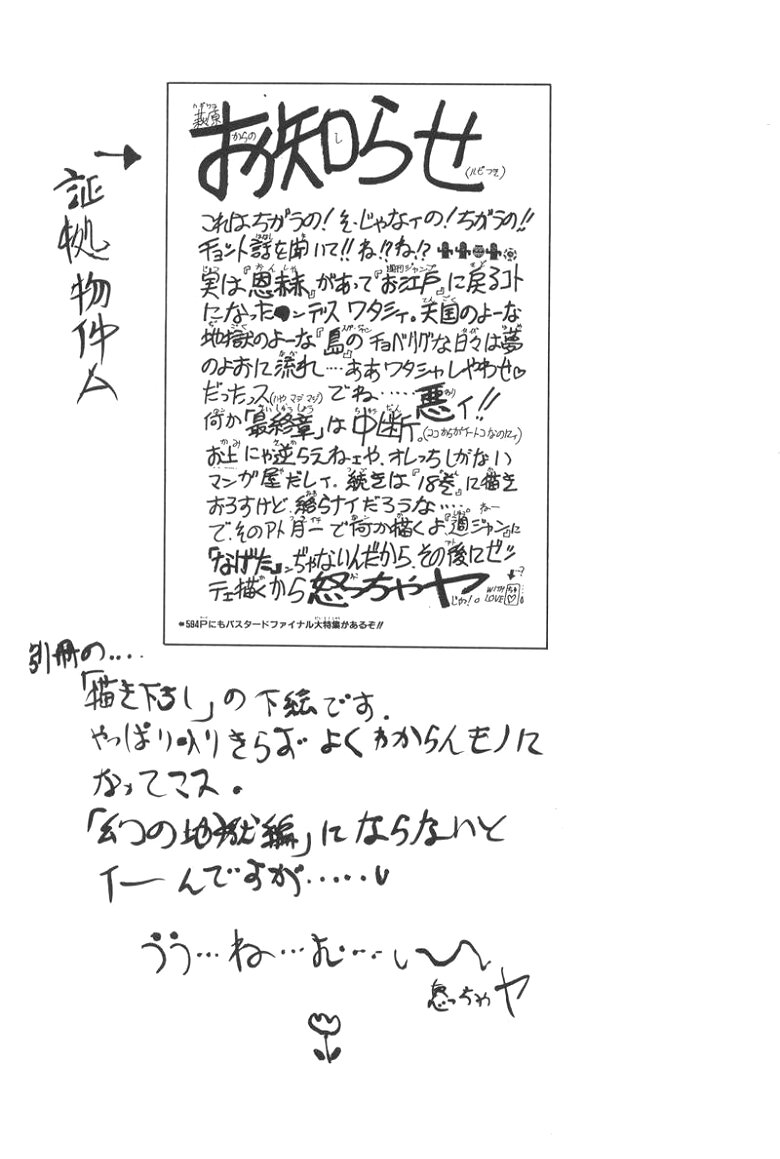 証拠物件A
萩原からのお知らせ
(ルビつき)
これはちがうの!そ-じゃなィの!ちがうの!!
チョット話を聞いて!!ね!?ね!?
実は『恩赦』があって『お江戸』に戻るコト
になったンデス ワタシィ。天国のよーな
地獄のよーな『島』のチョベリグな日々は夢
のよおに流れ…‥ああワタシャしやわせ♡
だったっス(ハヤ マジ マジ)でね‥‥‥悪ィ!!
何か「最終章」は中断。(ココからがイートコなのにィ)
お上にゃ逆らえねェや、オレっちしがない
マンガ屋だしィ。続きは『18巻』に描き
おろすけど、終らナイだろうな‥‥
で、そのアト月一で何か描くよ『週ジャン』に
『なげた』ンぢゃないんだから、その後にゼッ
テェ描くから怒っちゃヤ
じゃ!。 WITH LOVE
●594Pにもバスタードファイナル大特集があるぞ!!
別冊の‥‥
「描き下ろし」の下絵です.
やっぱり入りきらず よくわからんモノに
なってマス。
「幻の地獄編」にならないと
イーんですが‥‥‥
ううう…ね…む…い〜
怒っちゃヤ